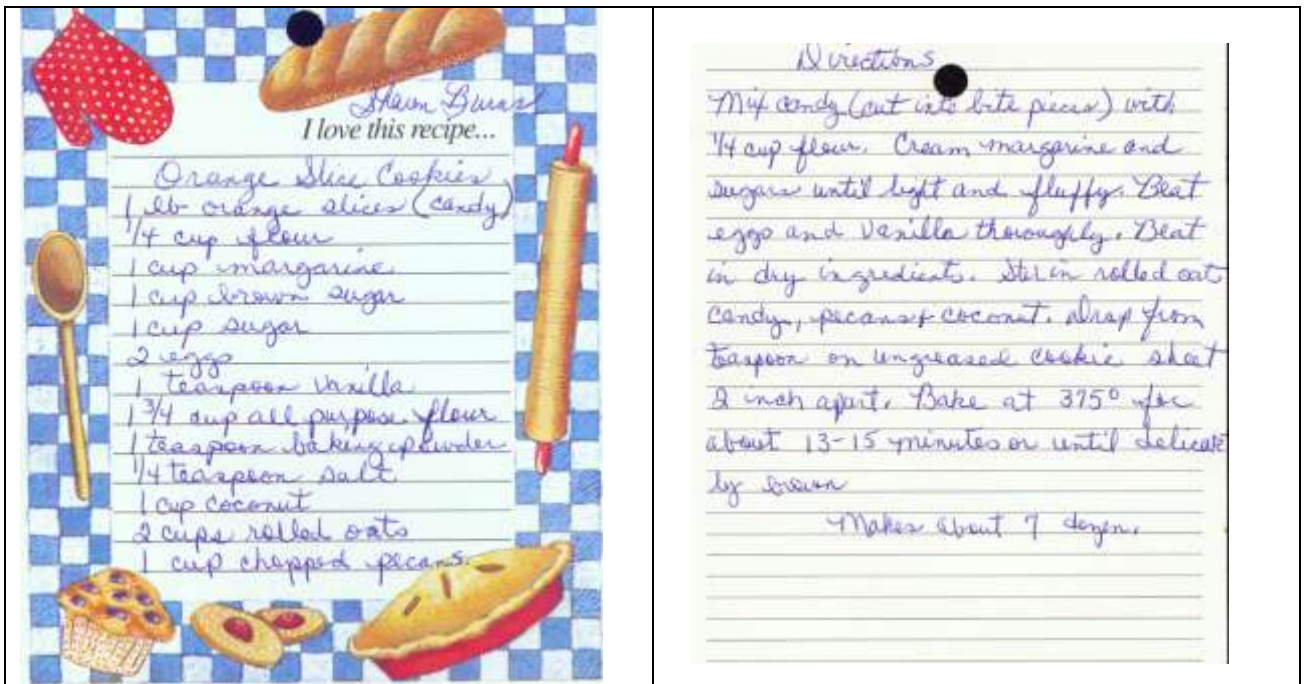 Shawn Burns
I love this recipe...
Orange Slice Cookies
1 lb orange slices (candy)
1/4 cup flour
1 cup margarine
1 cup brown sugar
1 cup sugar
2 eggs
1 teaspoon vanilla
1 3/4 cup all purpose flour
1 teaspoon baking powder
1/4 teaspoon salt
1 cup coconut
2 cups rolled oats
1 cup chopped pecans.
Directions
Mix candy (cut into bite pieces) with
1/4 cup flour. Cream margarine and
sugars until light and fluffy. Beat
eggs and vanilla thoroughly. Beat
in dry ingredients. Stir in rolled oat
candy, pecans & coconut. Drop from
teaspoon on ungreased cookie sheet
2 inch apart. Bake at 375° for
about 13-15 minutes or until delicate
ly brown
Makes about 7 dozen.